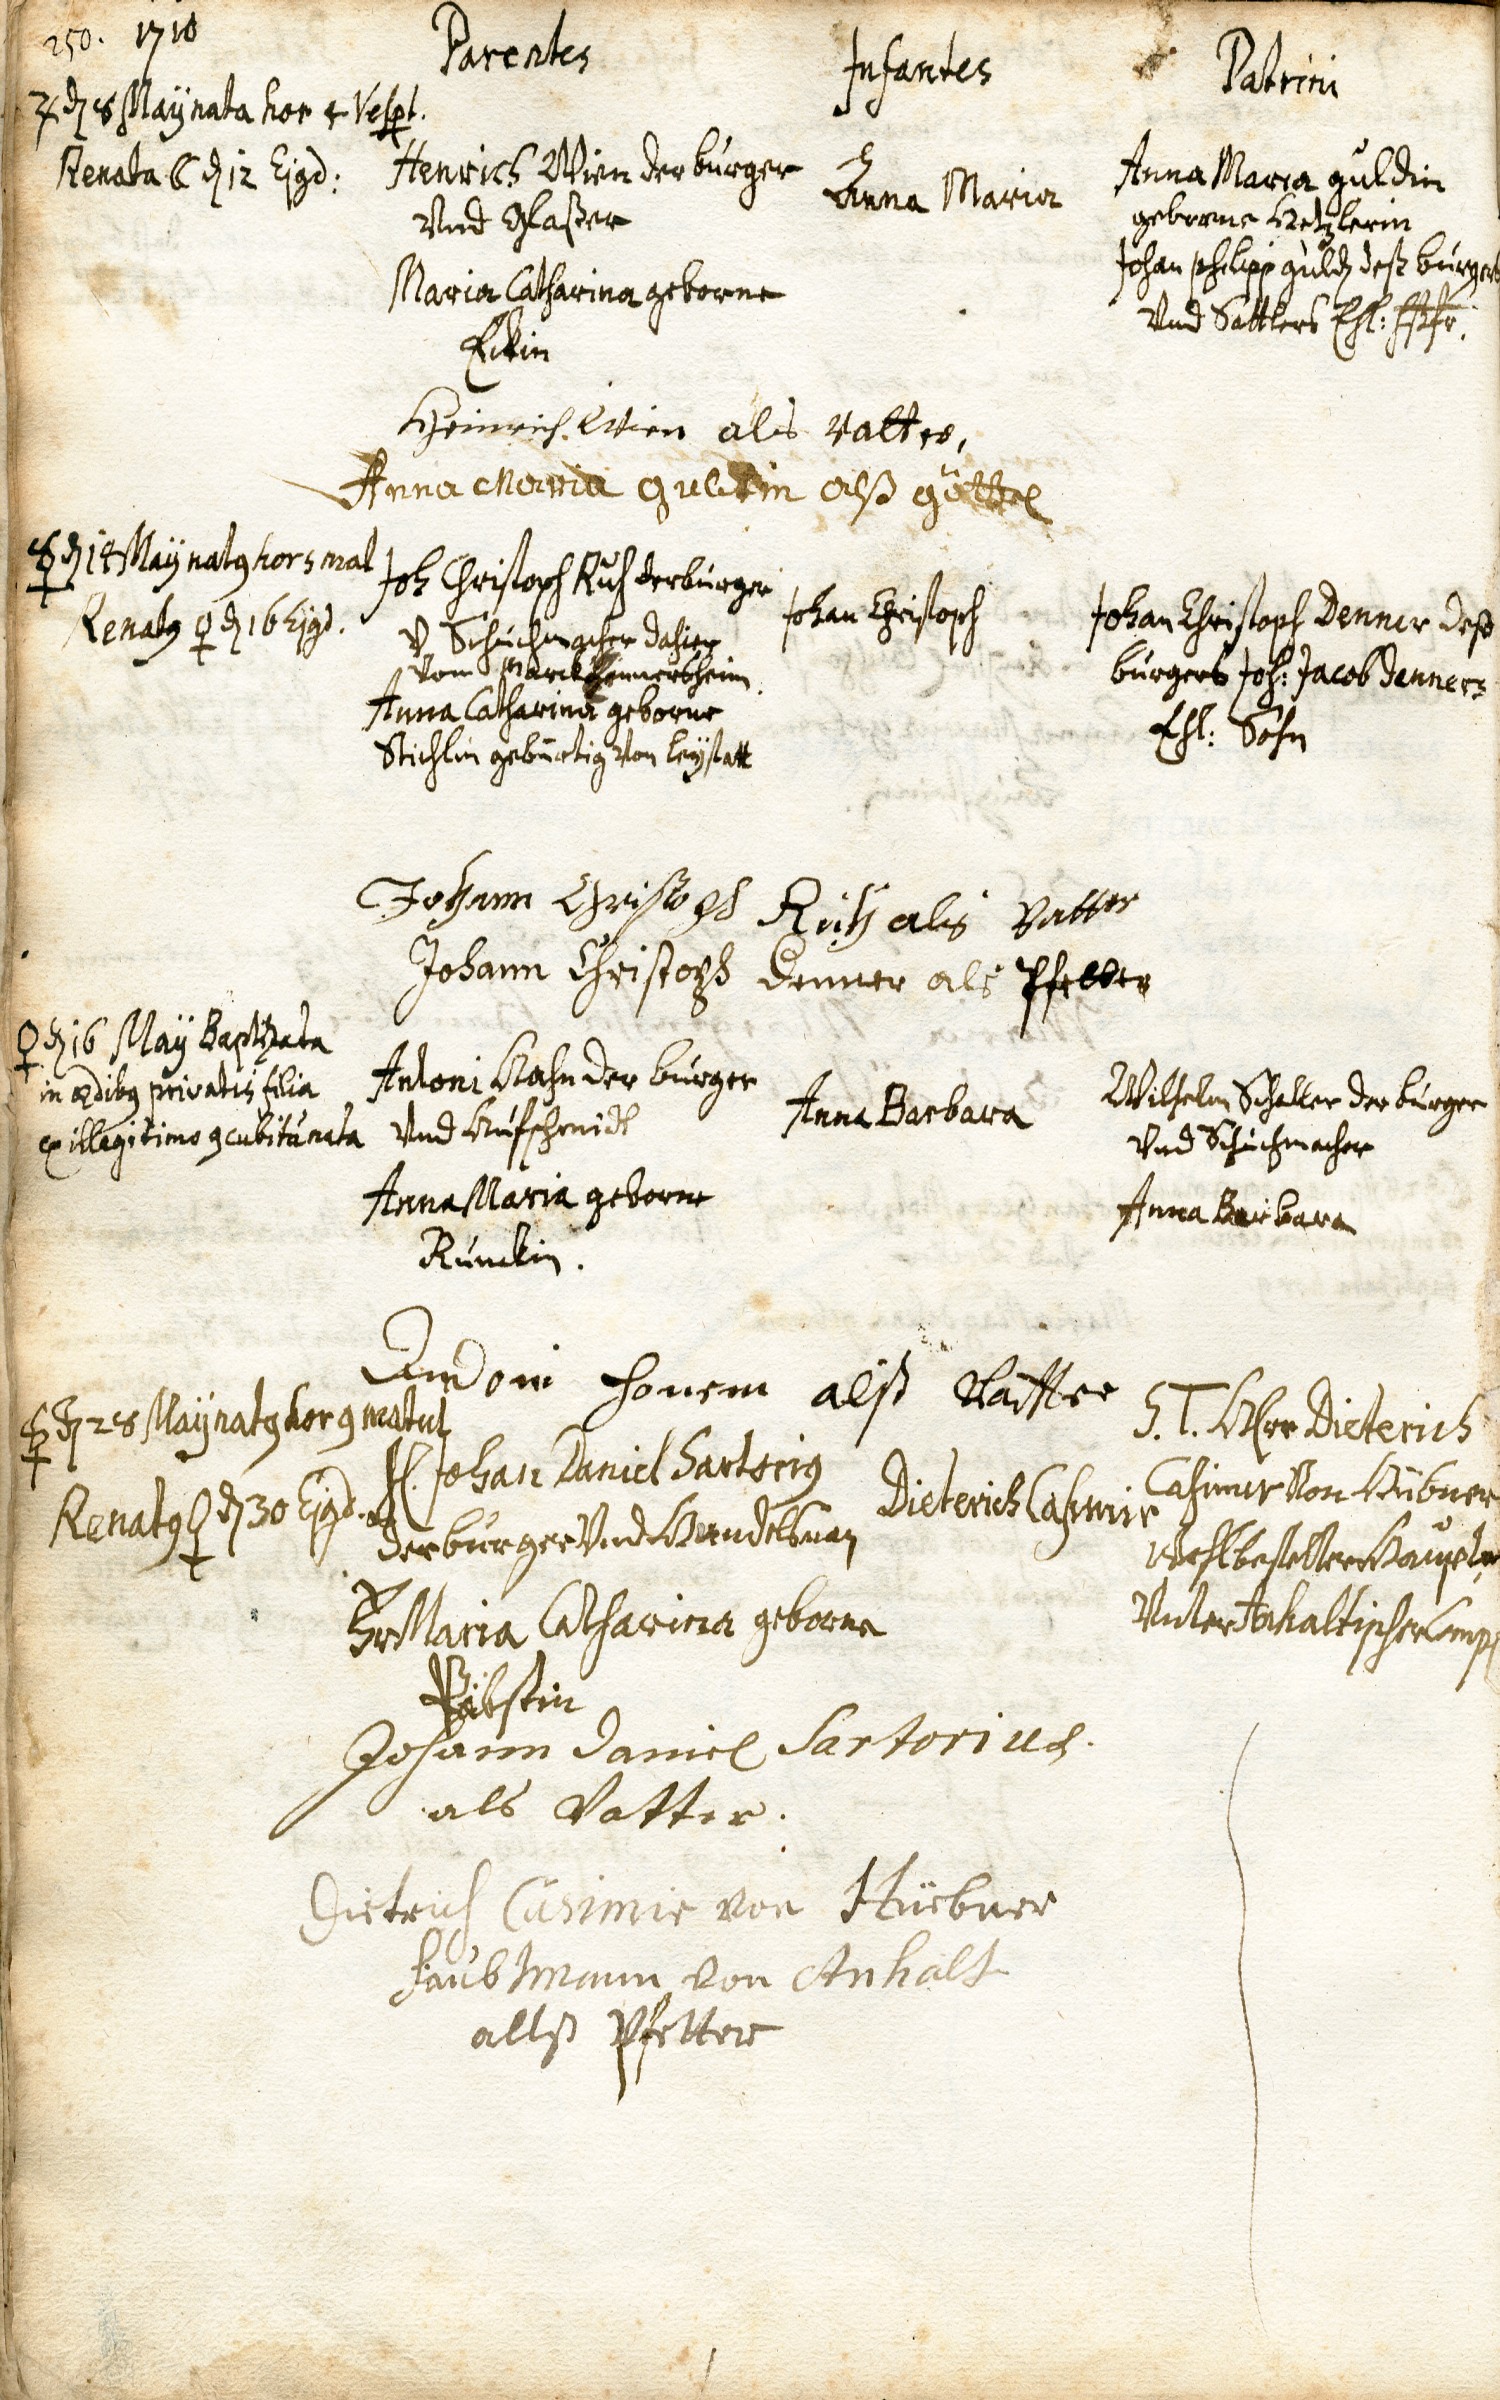 250. 1710
Parentes
Infantes
Patrini
♃ d 8 Maÿ nata hor 4 Vespt.
Renata ☾ d 12 Ejqd:
Henrich Wien der burger
Vnd Glaßer
Maria Catharina geborne
Eckin
Anna Maria
Anna Maria guldin
geborne Hetzlerin
Johan philipp guld deß burgers
Vnd Sattlers Ehl: Hßfr.
Heinrich Wien als vatter,
Anna Maria guldin alß göttel
☿ d 14 Maÿ natq hor 5 mat
Renatq ♀ d 16 Ejqd.
Joh Christoph Ruh der burger
V Schuchmacher dahier
Vom Marck
Anna Catharina geborne
Stichlin gebürtig Von Leÿstatt
Johan Christoph
Johan Christoph Denner deß
burgers Joh: Jacob Denners
Ehl: Sohn
Johann Christoph Ruh als Vatter
Johann Christoph Denner als Pfetter
♀ d 16 Maÿ Baptizata
in ædibq privatis filia
ex illegitimo qcubitu nata
Antoni Hahn der burger
Vnd Hufschmidt
Anna Maria geborne
Runckin.
Anna Barbara
Wilhelm Schaller der burger
Vnd Schuchmacher
Anna Barbara
Andoni honem alß Vatter
☿ d 28 Maÿ natq hor 9 matut
Renatq ♀ d 30 Ejqd.
H. Johan Daniel Sartoriq
der burger Vnd Handelsman
Fr Maria Catharina geborne
Pabstin
Dieterich Casimir
S. T. Herr Dieterich
Casimir Von Hübner
wohlbestelter Hauptm
Vnter Anhaltischer Comp
Johann Daniel Sartorius.
als Vatter.
Dietrich Casimir von Hüebner
haubtmann von Anhalt
allß Pfetter